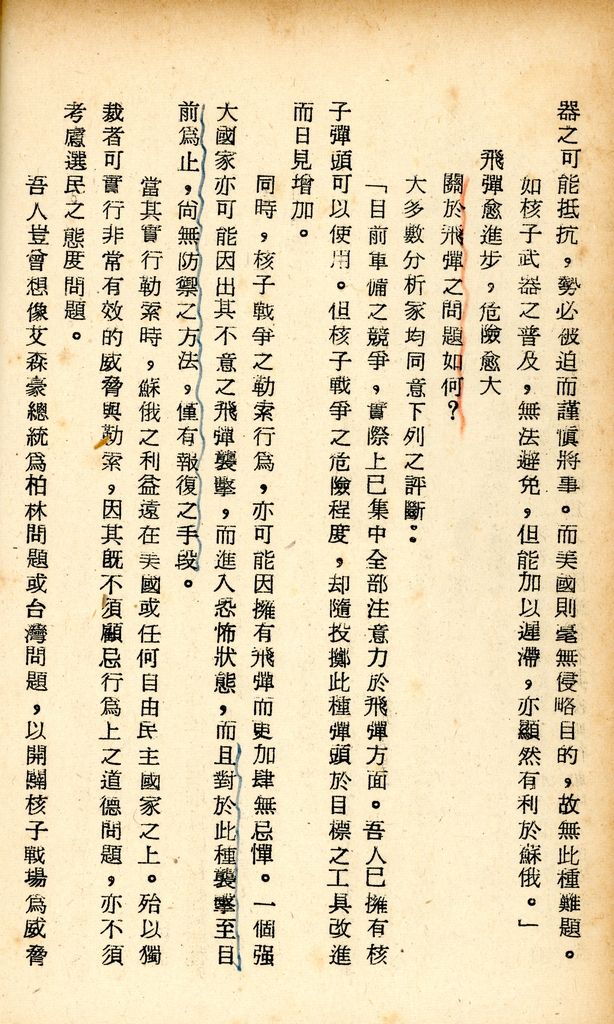 器之可能抵抗，勢必被迫而謹慎將事。而美國則毫無侵略目的，故無此種難題。
如核子武器之普及，無法避免，但能加以遲滯，亦顯然有利於蘇俄。」
飛彈愈進步，危險愈大
關於飛彈之問題如何？
大多數分析家均同意下列之評斷：
「目前軍備之競爭，實際上已集中全部注意力於飛彈方面。吾人已擁有核
子彈頭可以使用。但核子戰爭之危險程度，却隨投擲此種彈頭於目標之工具改進
而日見增加。
同時，核子戰爭之勒索行為，亦可能因擁有飛彈而更加肆無忌憚。一個强
大國家亦可能因出其不意之飛彈襲擊，而進入恐怖狀態，而且對於此種襲擊至目
前為止，尙無防禦之方法，僅有報復之手段。
當其實行勒索時，蘇俄之利益遠在美國或任何自由民主國家之上。殆以獨
裁者可實行非常有效的威脅與勒索，因其旣不須顧忌行為上之道德問題，亦不須
考慮選民之態度問題。
吾人豈曾想像艾森豪總統為柏林問題或台灣問題，以開闢核子戰場為威脅